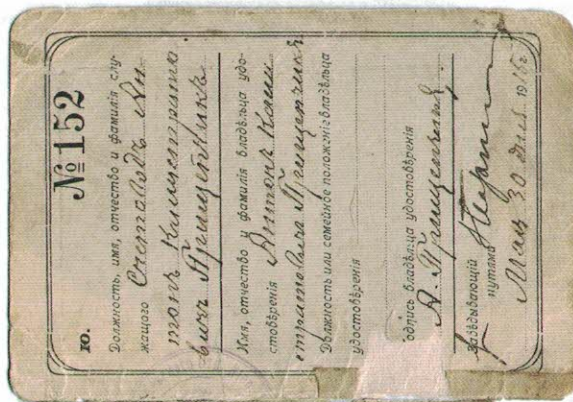 Ю.
№ 152
Должность, имя, отчество и фамилія слу-
жащаго Счетоводъ Ан
тонъ Калистрато
вичъ Прищепчикъ
Имя, отчество и фамилія владѣльца удо-
стовѣренія Антонъ Кали
стратовичъ Прищепчикъ
Должность или семейное положеніе владѣльца
удостовѣренія
одпись владѣльца удостовѣренія
А. Прищепчикъ
Завѣдывающій
путями
Мая 30 дня 191